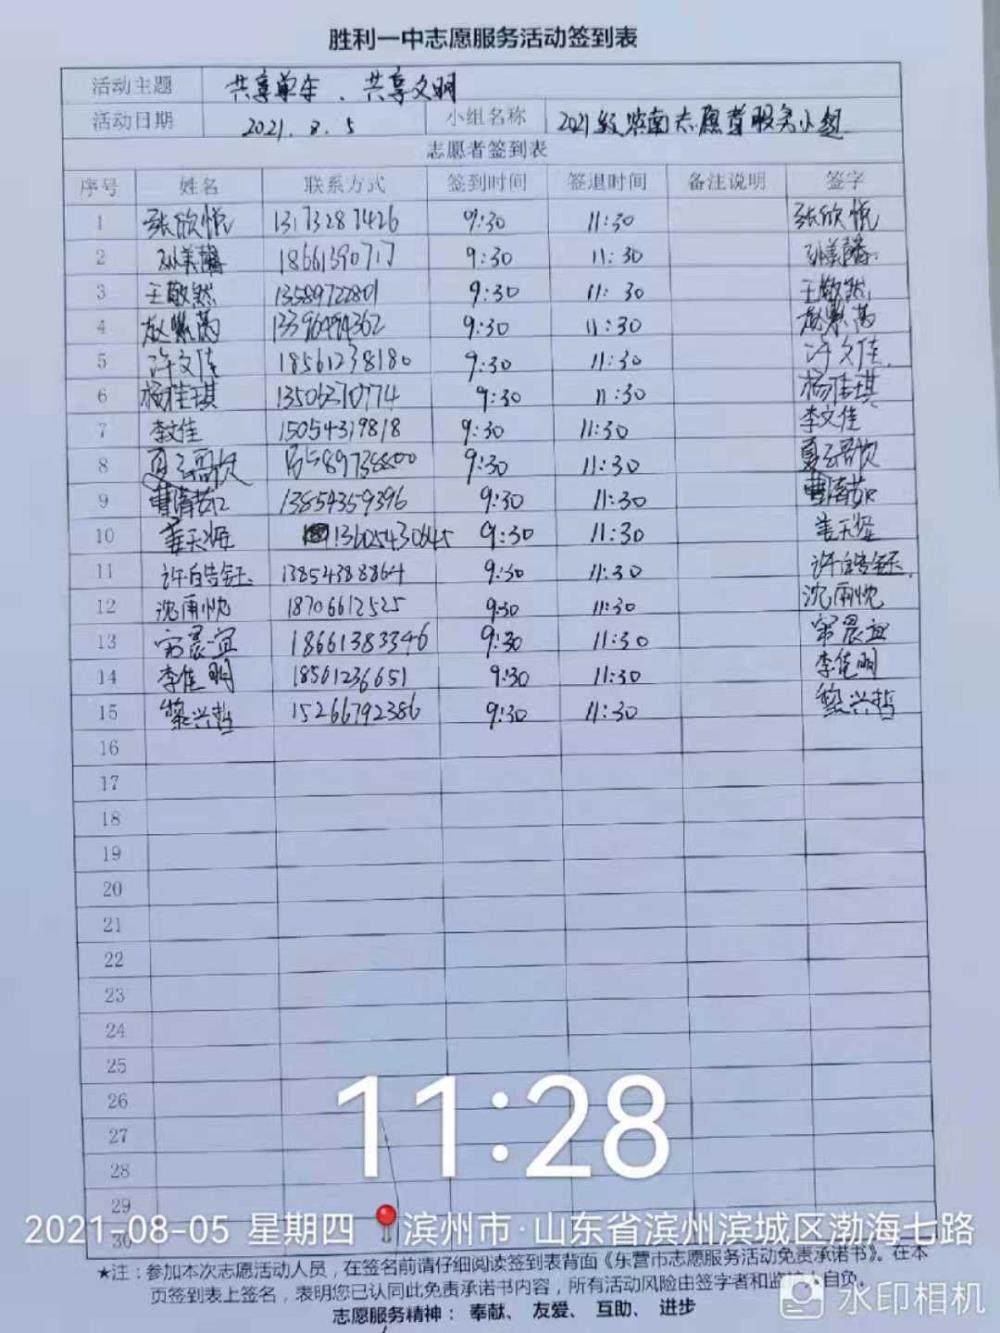 胜利一中志愿服务活动签到表
活动主题 共享单车、共享文明
活动日期 2021.8.5 小组名称 2021级 志愿者服务小组
志愿者签到表
序号 姓名 联系方式 签到时间 签退时间 备注说明 签字
1 张欣悦 13173287426 9:30 11:30 张欣悦
2 孙美馨 18661390717 9:30 11:30 孙美馨
3 王敬然 13589722801 9:30 11:30 王敬然
4 13396494362 9:30 11:30
5 许文佳 18561238180 9:30 11:30 许文佳
6 杨佳琪 13506370774 9:30 11:30 杨佳琪
7 李文佳 15054319818 9:30 11:30 李文佳
8 夏云歌 9:30 11:30 夏云歌
9 曹清茹 13854359396 9:30 11:30 曹清茹
10 姜天烁 13605430645 9:30 11:30
11 许皓钰 13854388864 9:30 11:30 许皓钰
12 沈雨忱 18706612525 9:30 11:30 沈雨忱
13 宋晨宜 18661383346 9:30 11:30 宋晨宜
14 李佳明 18561236651 9:30 11:30 李佳明
15 黎兴哲 15266792386 9:30 11:30 黎兴哲
16
17
18
19
20
21
22
23
24
25
26
27
28
29
30
11:28
2021-08-05 星期四 滨州市·山东省滨州滨城区渤海七路
*注：参加本次志愿活动人员，在签名前请仔细阅读签到表背面《东营市志愿服务活动免责承诺书》。在本
页签到表上签名，表明您已认同此免责承诺书内容，所有活动风险由签字者和监护人自负。
志愿服务精神：奉献、友爱、互助、进步
水印相机